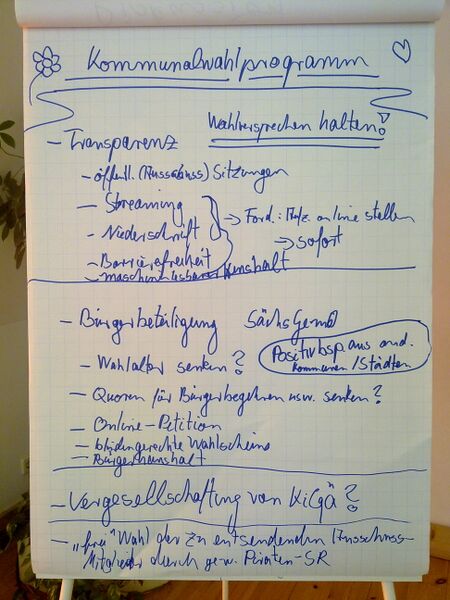 Kommunalwahlprogramm
Wahlversprechen halten!
- Transparenz
- öffentl. (Ausschuss) Sitzungen
- Streaming
- Niederschrift
→ Ford.: Aufz. online stellen
→ sofort
- Barrierefreiheit
- maschinenlesbarer Haushalt
- Bürgerbeteiligung SächsGemO
Positivbsp. aus and.
Kommunen/Städten
- Wahlalter senken?
- Quoren für Bürgerbegehren usw. senken?
- Online-Petition
- blindengerechte Wahlscheine
- Bürgerhaushalt
- Vergesellschaftung von KiGä?
- „frei" Wahl der zu entsendenden Ausschuss-
Mitglieder durch gew. Piraten-SR